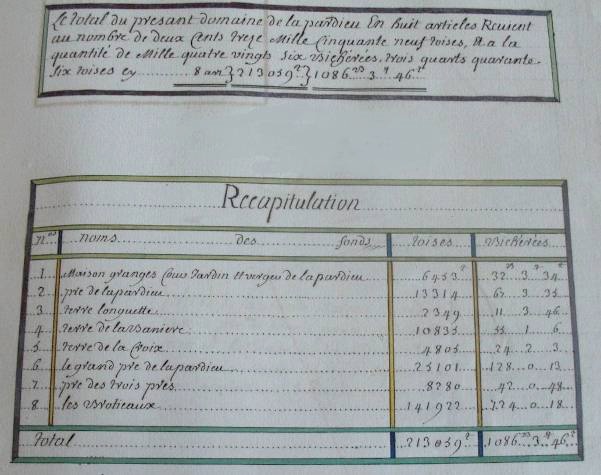 Le total du presant domaine de la pardieu En huit articles Revient
au nombre de deux Cents treze Mille Cinquante neuf toises, Et a la
quantité de Mille quatre vingts six Bicherées, trois quarts quarante
six toises cy 8 art 213059 t 1086 B 3 q 46 t
Recapitulation
n.os noms des fonds toises Bicherées
1 Maison granges Cour Jardin et verger de la pardieu 6453 t 32 B 3 q 34 t
2 pré de la pardieu 13314 67 3 35
3 terre longuette 2349 11 3 46
4 terre de la Baniere 10835 55 1 6
5 terre de la Croix 4805 24 2 3
6 le grand pré de la pardieu 25101 128 0 13
7 pré des trois prés 8280 42 0 48
8 les Brotteaux 141922 724 0 18
Total 213059 t 1086 B 3 q 46 t